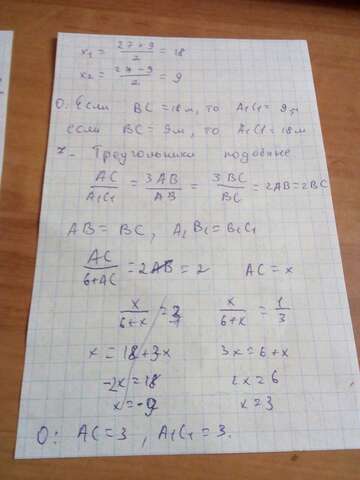 x₁ = (27+9)/2 = 18
x₂ = (27-9)/2 = 9
О. Если BC = 18м, то A₁C₁ = 9м
если BC = 9м, то A₁C₁ = 18м
7- Треугольники подобные
AC/A₁C₁ = 3AB/AB = 3BC/BC = 2AB = 2BC
AB = BC, A₁B₁ = B₁C₁
AC/(6+AC) = 2AB = 2 AC = x
x/(6+x) = x/(6+x) = 1/3
x = 18+3x 3x = 6+x
-2x = 18 2x = 6
x = -9 x = 3
О: AC = 3, A₁C₁ = 3.